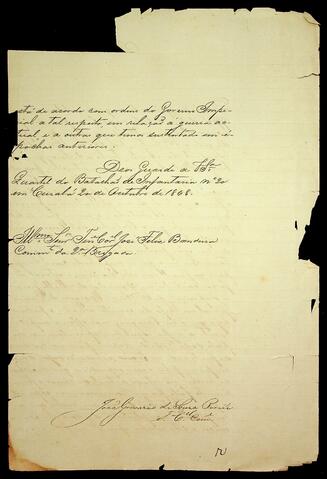 está de acordo com ordens do Governo Impe-
rial a tal respeito, em relação a guerra ac-
tual, e a outras que temos sustentado em é-
pochas anteriores.
Deos Guarde a V. Sª
Quartel do Batalhão de Infantaria nº 20
em Cuiabá 20 de Outubro de 1868.
Illmo Sr. Tene Corel José Felix Bandeira
Comme da 2ª Brigada
José
Te Cel Come